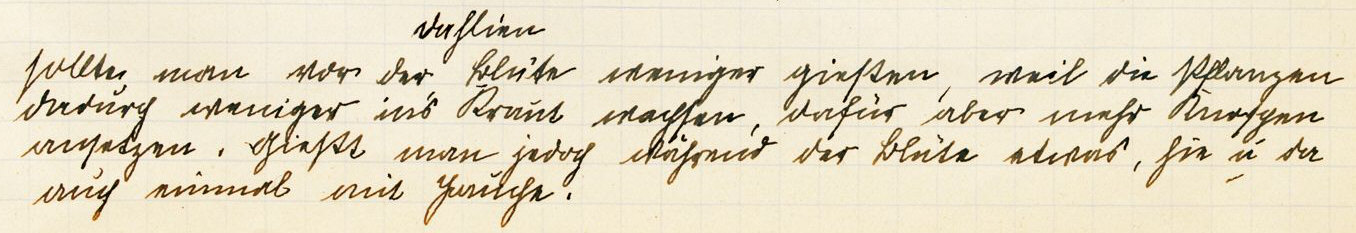 Dahlien
sollte man vor der Blüte weniger gießen, weil die Pflanzen
dadurch weniger in's Kraut wachsen, dafür aber mehr Knospen
ansetzen. Gießt man jedoch während der Blüte etwas, hie u. da
auch einmal mit Jauche.